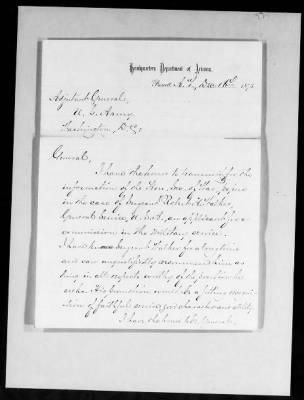 Headquarters Department of Arizona,
Prescott A.T., Dec 16th 187
Adjutant General,
U. S. Army
Washington, D.C.
General,
I have the honor to transmit for the
information of the Hon. Sec. of War, papers
in the case of Sergeant Robert
General Service, U.S.A., an applicant for a
commission in the military service.
I have known Sergeant for a long time
and can unqualifiedly recommend him as
being in all respects worthy of the position he
asks. His promotion would be a fitting recogni-
tion of faithful service, good character and ability.
I have the honor to be, General,